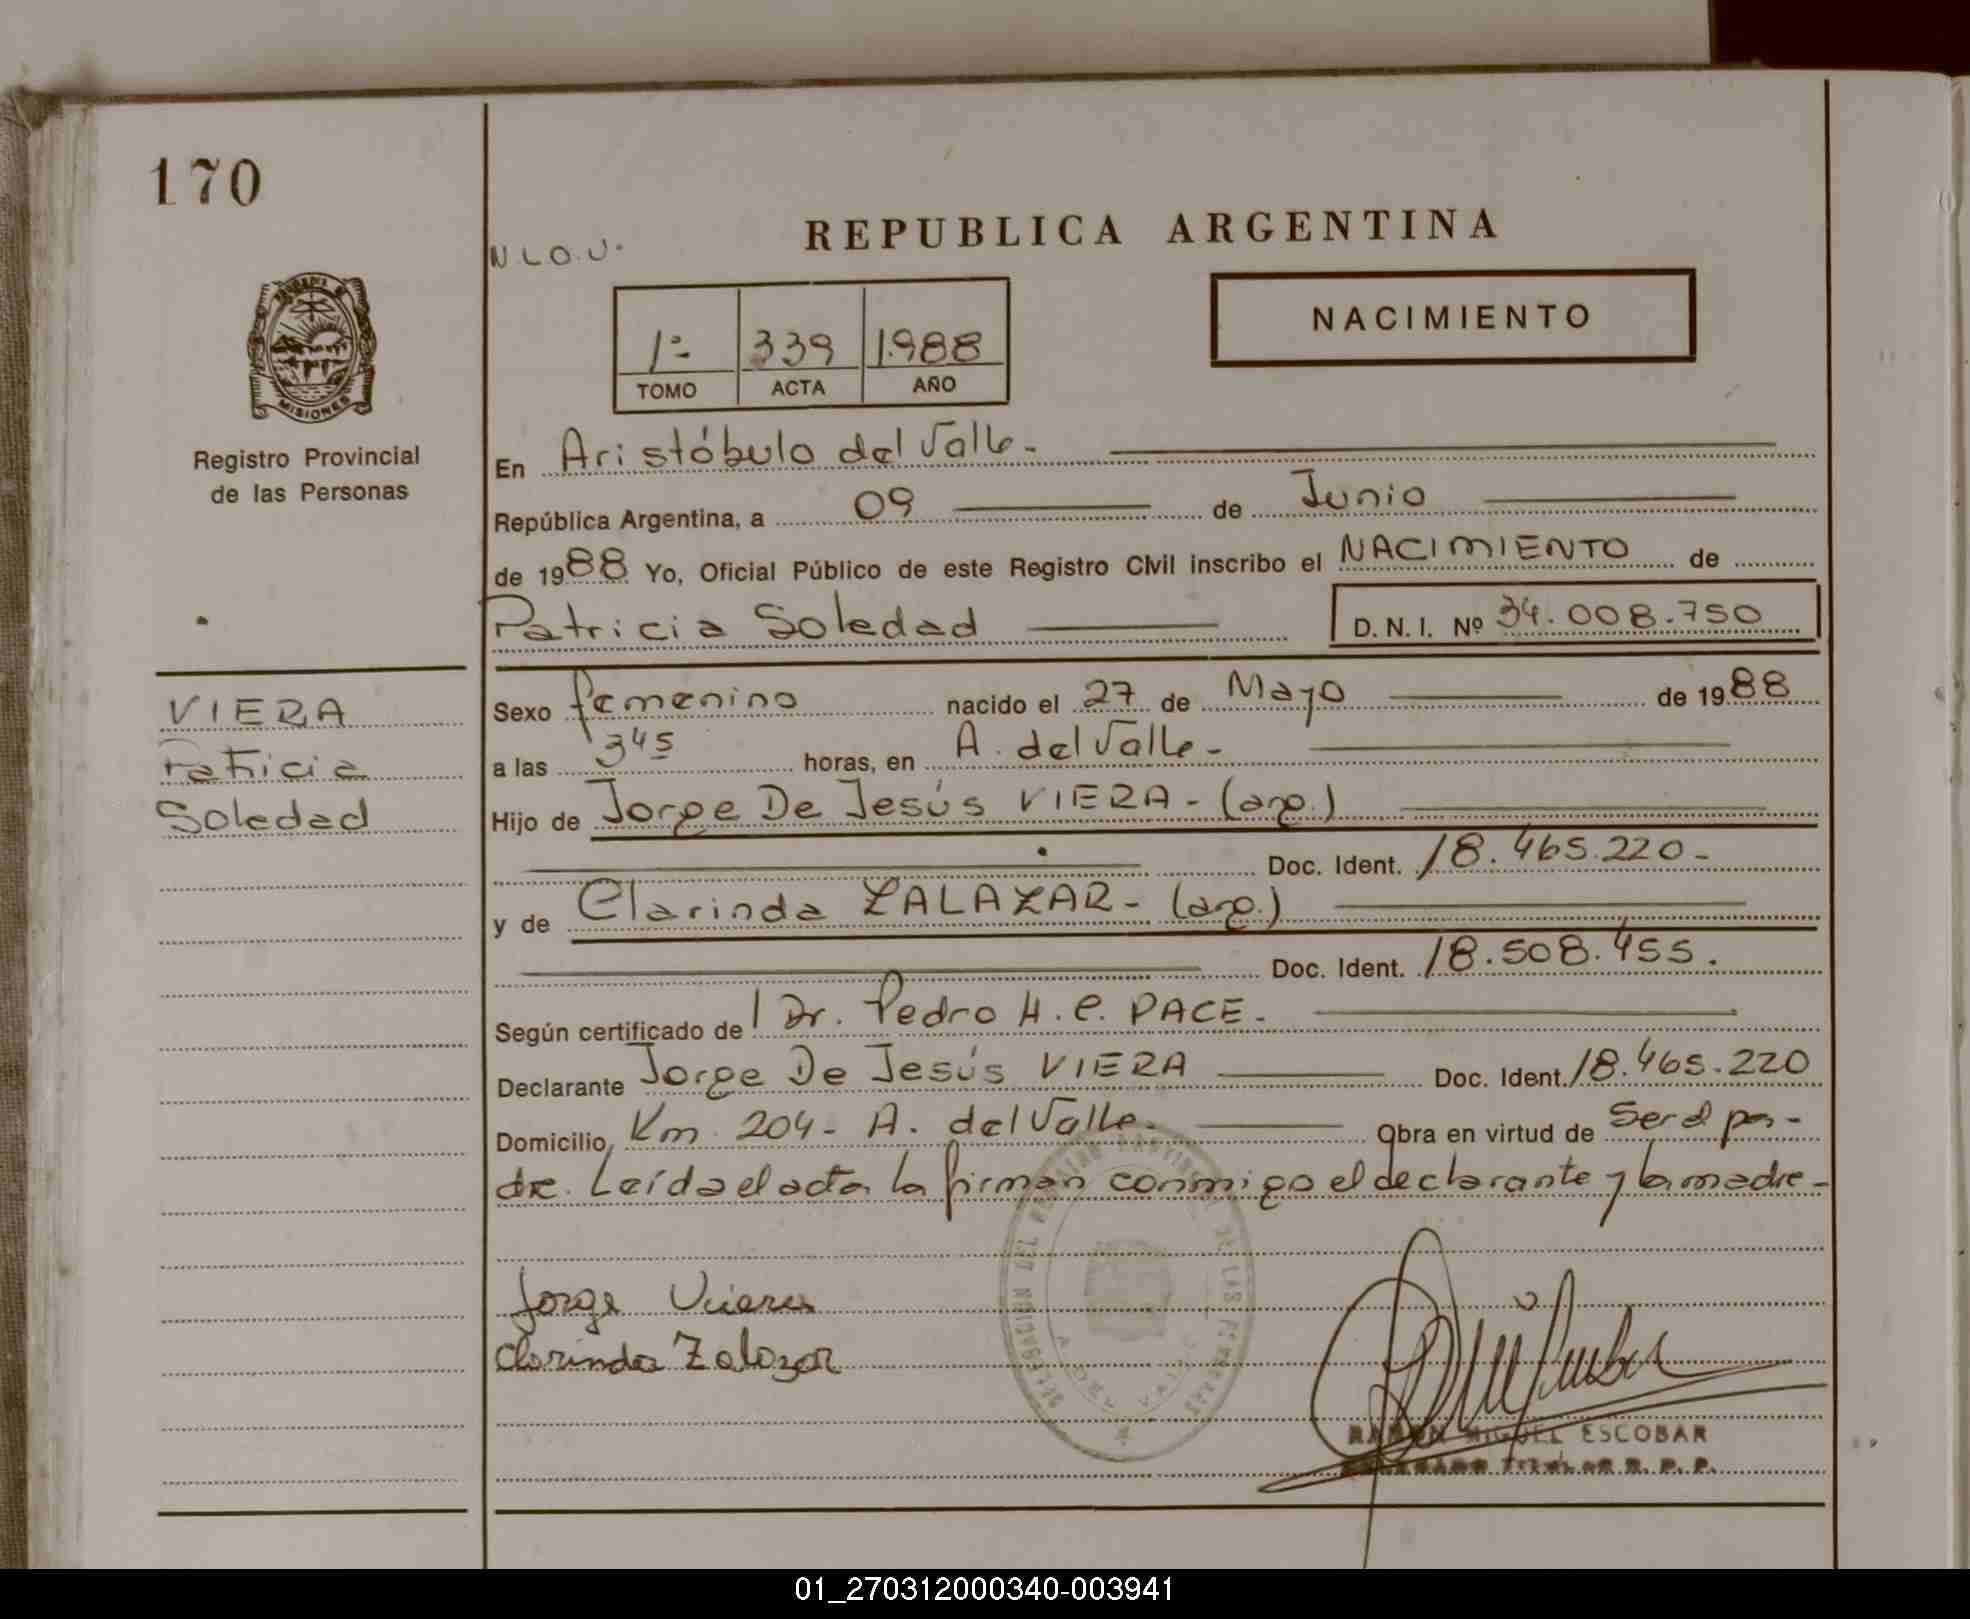 170
N.L.O.U.
REPUBLICA ARGENTINA
NACIMIENTO
1º 339 1.988
TOMO ACTA AÑO
MISIONES
Registro Provincial
de las Personas
En Aristóbulo del Valle.-
República Argentina, a 09 de Junio
de 1988 Yo, Oficial Público de este Registro Civil inscribo el NACIMIENTO de
Patricia Soledad D.N.I. Nº 34.008.750
VIERA
Patricia
Soledad
Sexo femenino nacido el 27 de Mayo de 1988
a las 3 45 horas, en A. del Valle.-
Hijo de Jorge De Jesús VIERA - (arg.)
Doc. Ident. 18.465.220-
y de Clarinda ZALAZAR - (arg.)
Doc. Ident. 18.508.455.
Según certificado de Dr. Pedro H. C. PACE.-
Declarante Jorge De Jesús VIERA Doc. Ident. 18.465.220
Domicilio Km. 204- A. del Valle.- Obra en virtud de Ser el pa-
dre. Leída el acta la firman conmigo el declarante y la madre-
Jorge Viera
Clarinda Zalazar
DELEGACION DEL REGISTRO PROVINCIAL DE LAS PERSONAS
RAMON MIGUEL ESCOBAR
01_270312000340-003941